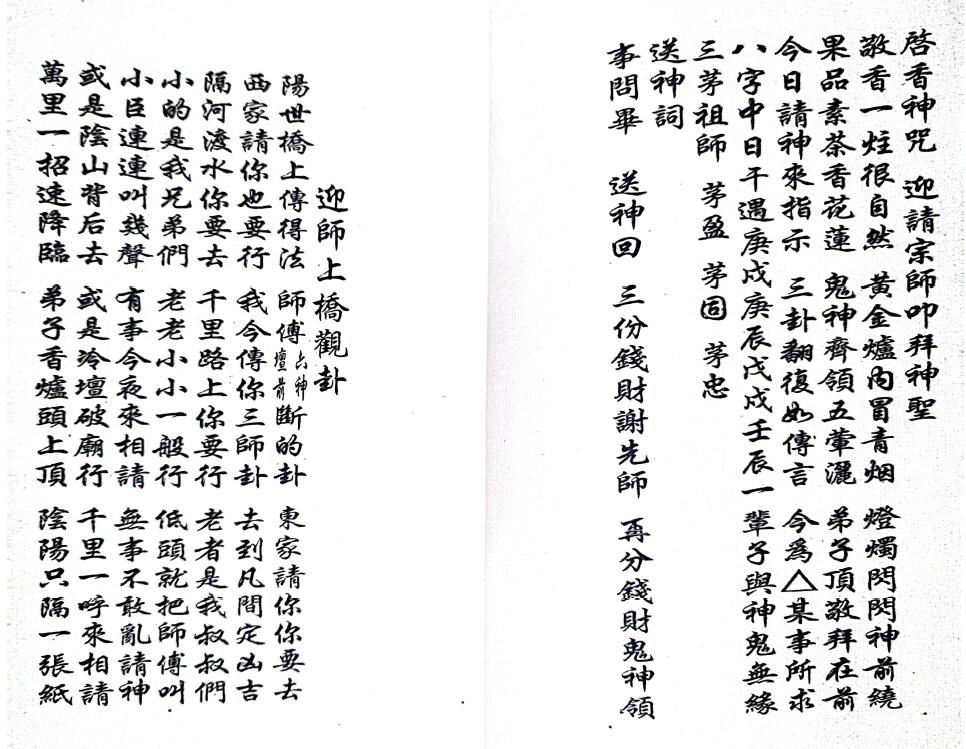 啓香神咒　迎請宗師叩拜神聖
敬香一炷很自然　黃金爐內冒青烟　燈燭閃閃神前繞
果品素茶香花蓮　鬼神齊領五葷灑　弟子頂敬拜在前
今日請神來指示　三卦翻復如傳言　今爲△某事所求
八字中日干遇庚戌庚辰戊戌壬辰一輩子與神鬼無緣
三茅祖師　茅盈　茅固　茅忠
送神詞
事問畢　送神回　三份錢財謝先師　再分錢財鬼神領
迎師上橋觀卦
陽世橋上傳得法　師傅占神壇前斷的卦　東家請你你要去
西家請你也要行　我今傳你三師卦　去到凡間定凶吉
隔河渡水你要去　千里路上你要行　老者是我叔叔們
小的是我兄弟們　老老小小一般行　低頭就把師傅叫
小臣連連叫幾聲　有事今夜來相請　無事不敢亂請神
或是陰山背后去　或是冷壇破廟行　千里一呼來相請
萬里一招速降臨　弟子香爐頭上頂　陰陽只隔一張紙